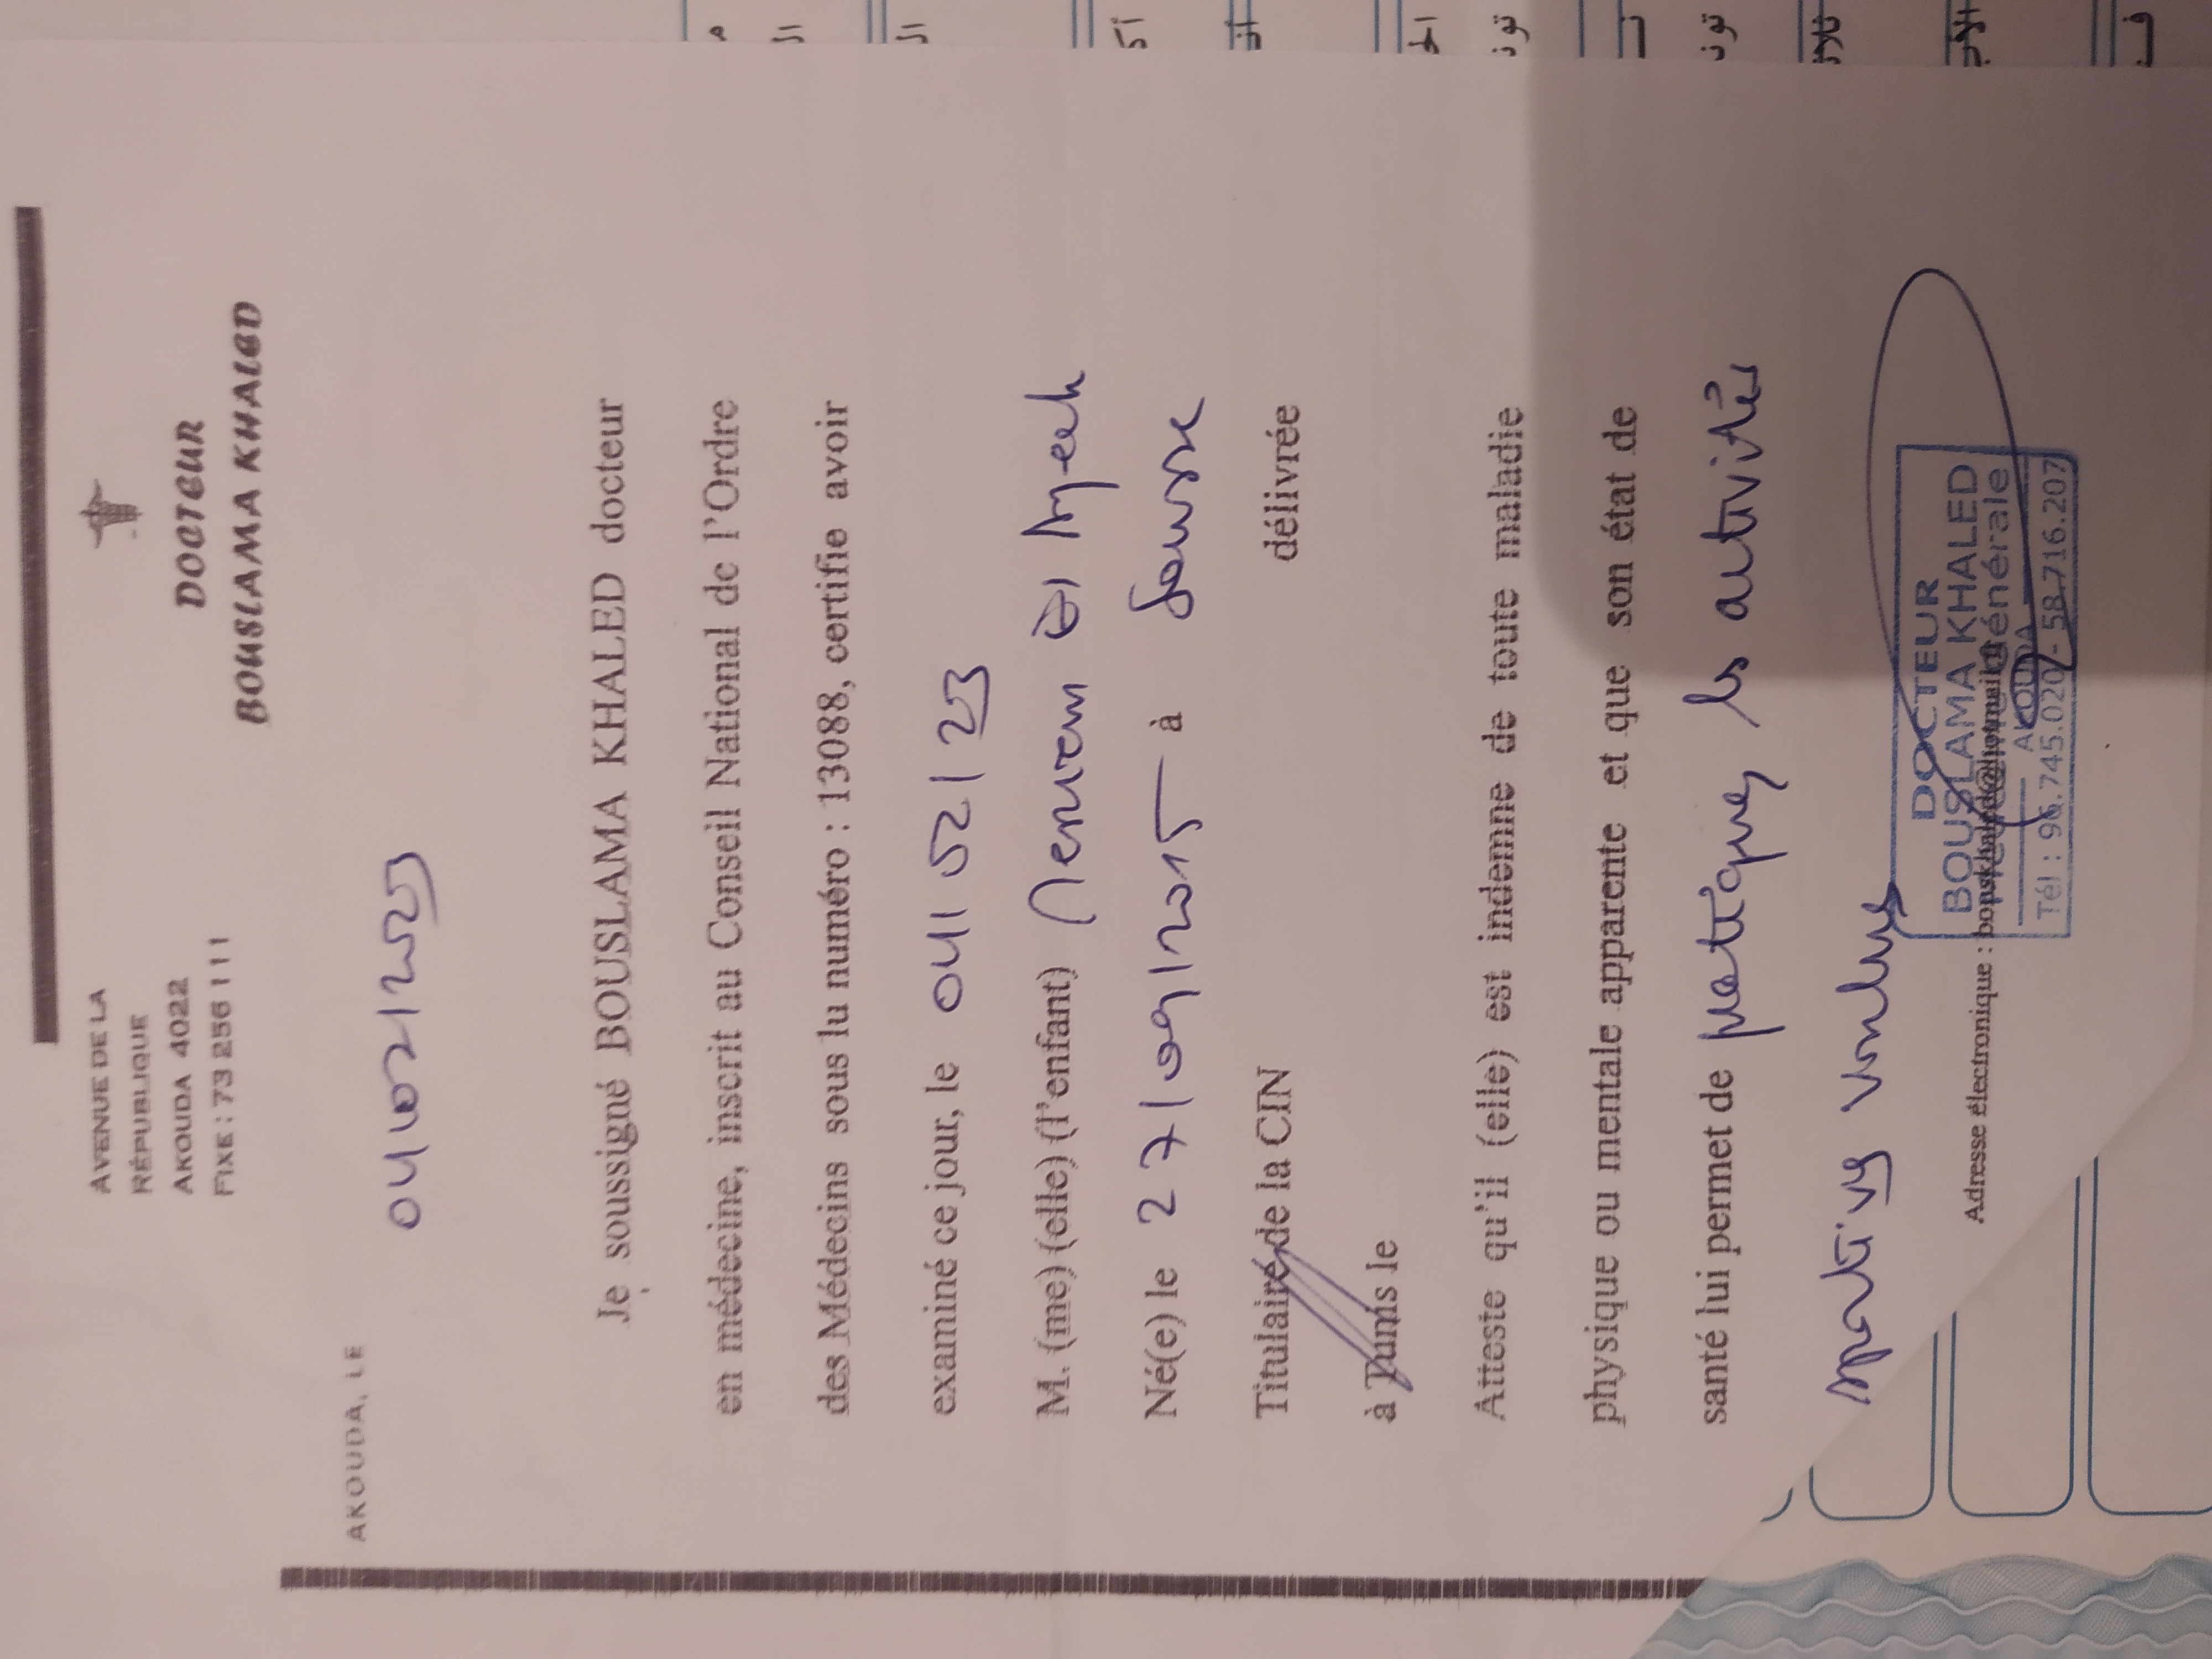 AVENUE DE LA
RÉPUBLIQUE
AKOUDA 4022
FIXE : 73 256 111
DOCTEUR
BOUSLAMA KHALED
AKOUDA, LE
04/02/2023
Je soussigné BOUSLAMA KHALED docteur
en médecine, inscrit au Conseil National de l'Ordre
des Médecins sous lu numéro : 13088, certifie avoir
examiné ce jour, le 04/02/23
M. (me) (elle) (l'enfant)
Né(e) le 27/09/2015 à Sousse
Titulaire de la CIN délivrée
à Tunis le
Atteste qu'il (elle) est indemne de toute maladie
physique ou mentale apparente et que son état de
santé lui permet de pratiquer les activités
DOCTEUR
BOUSLAMA KHALED
Générale
AKOUDA
Tél : 96.745.020 - 58.716.207
Adresse électronique :